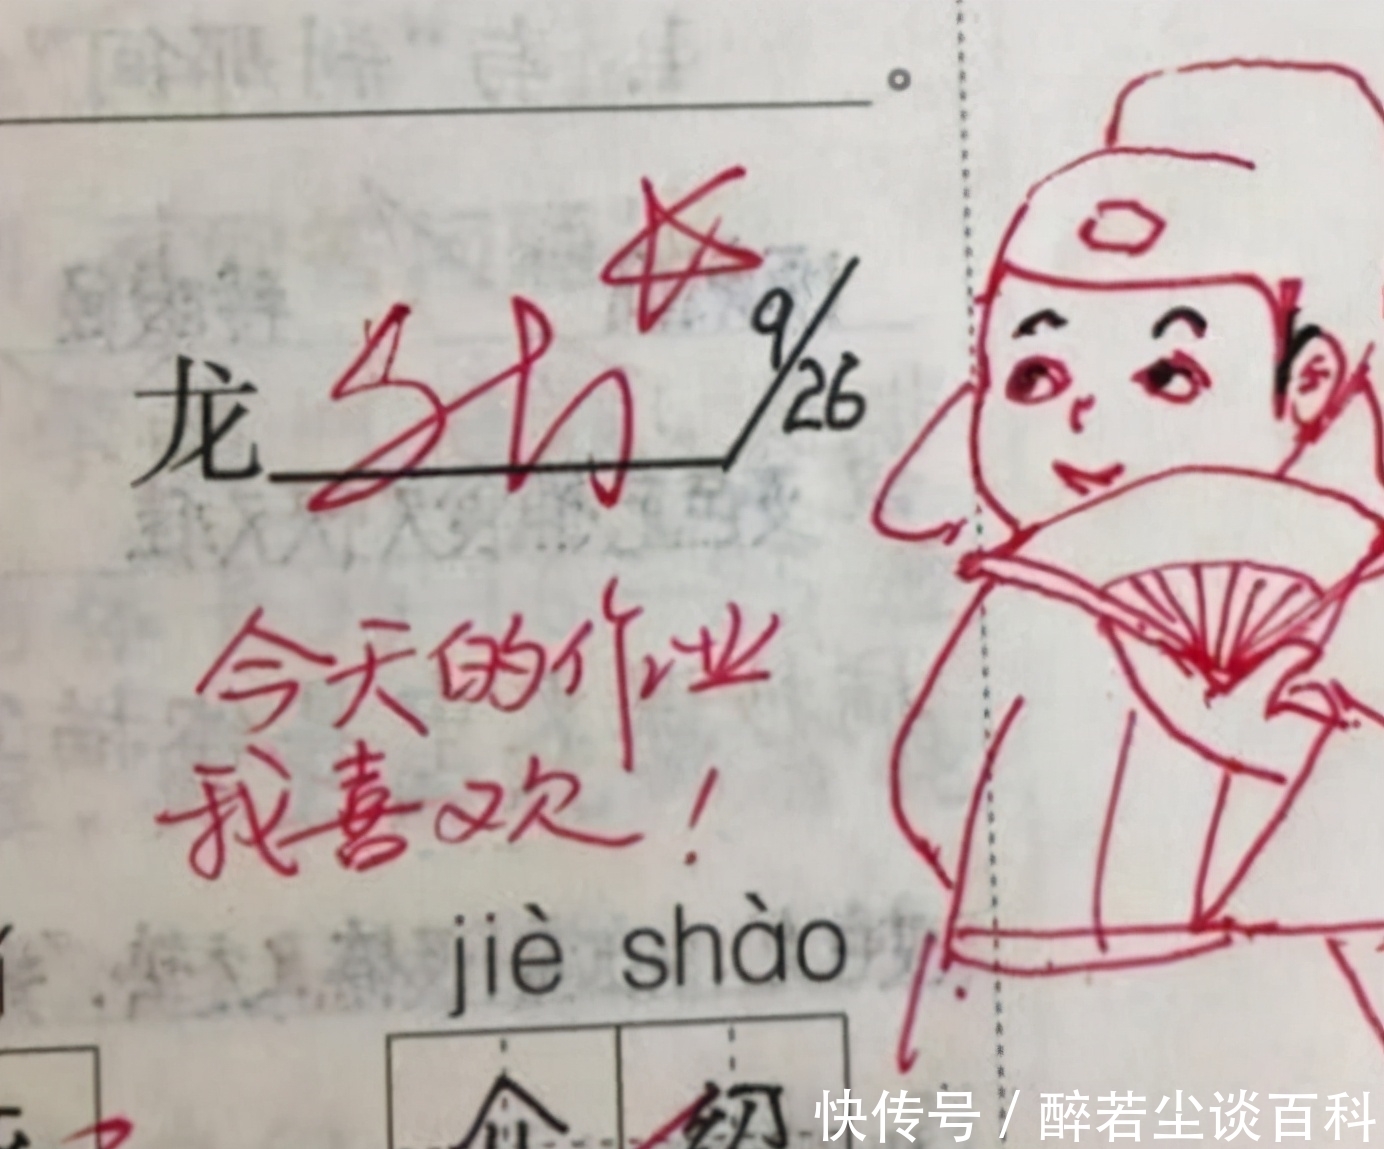 。
龙
9/26
今天的作业
我喜欢!
jiè shào
介 绍
快传号 / 醉若尘谈百科